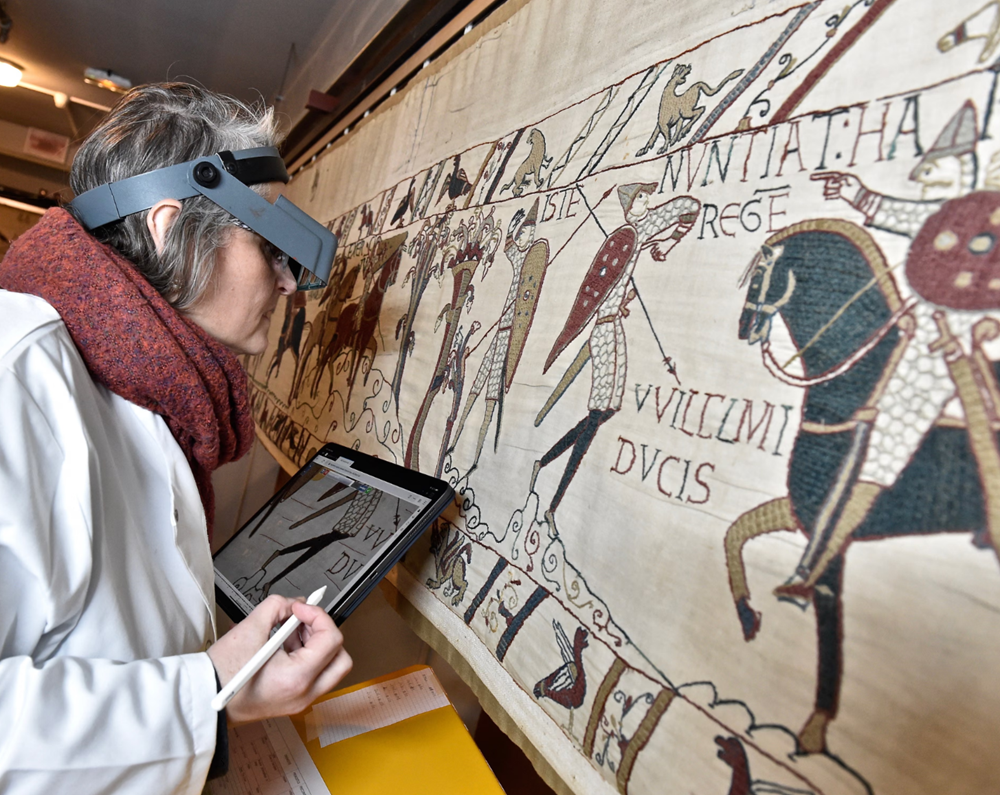 ISTE NVNTIAT:HA
REGĒ
VVILELMI
DVCIS
VV
DV